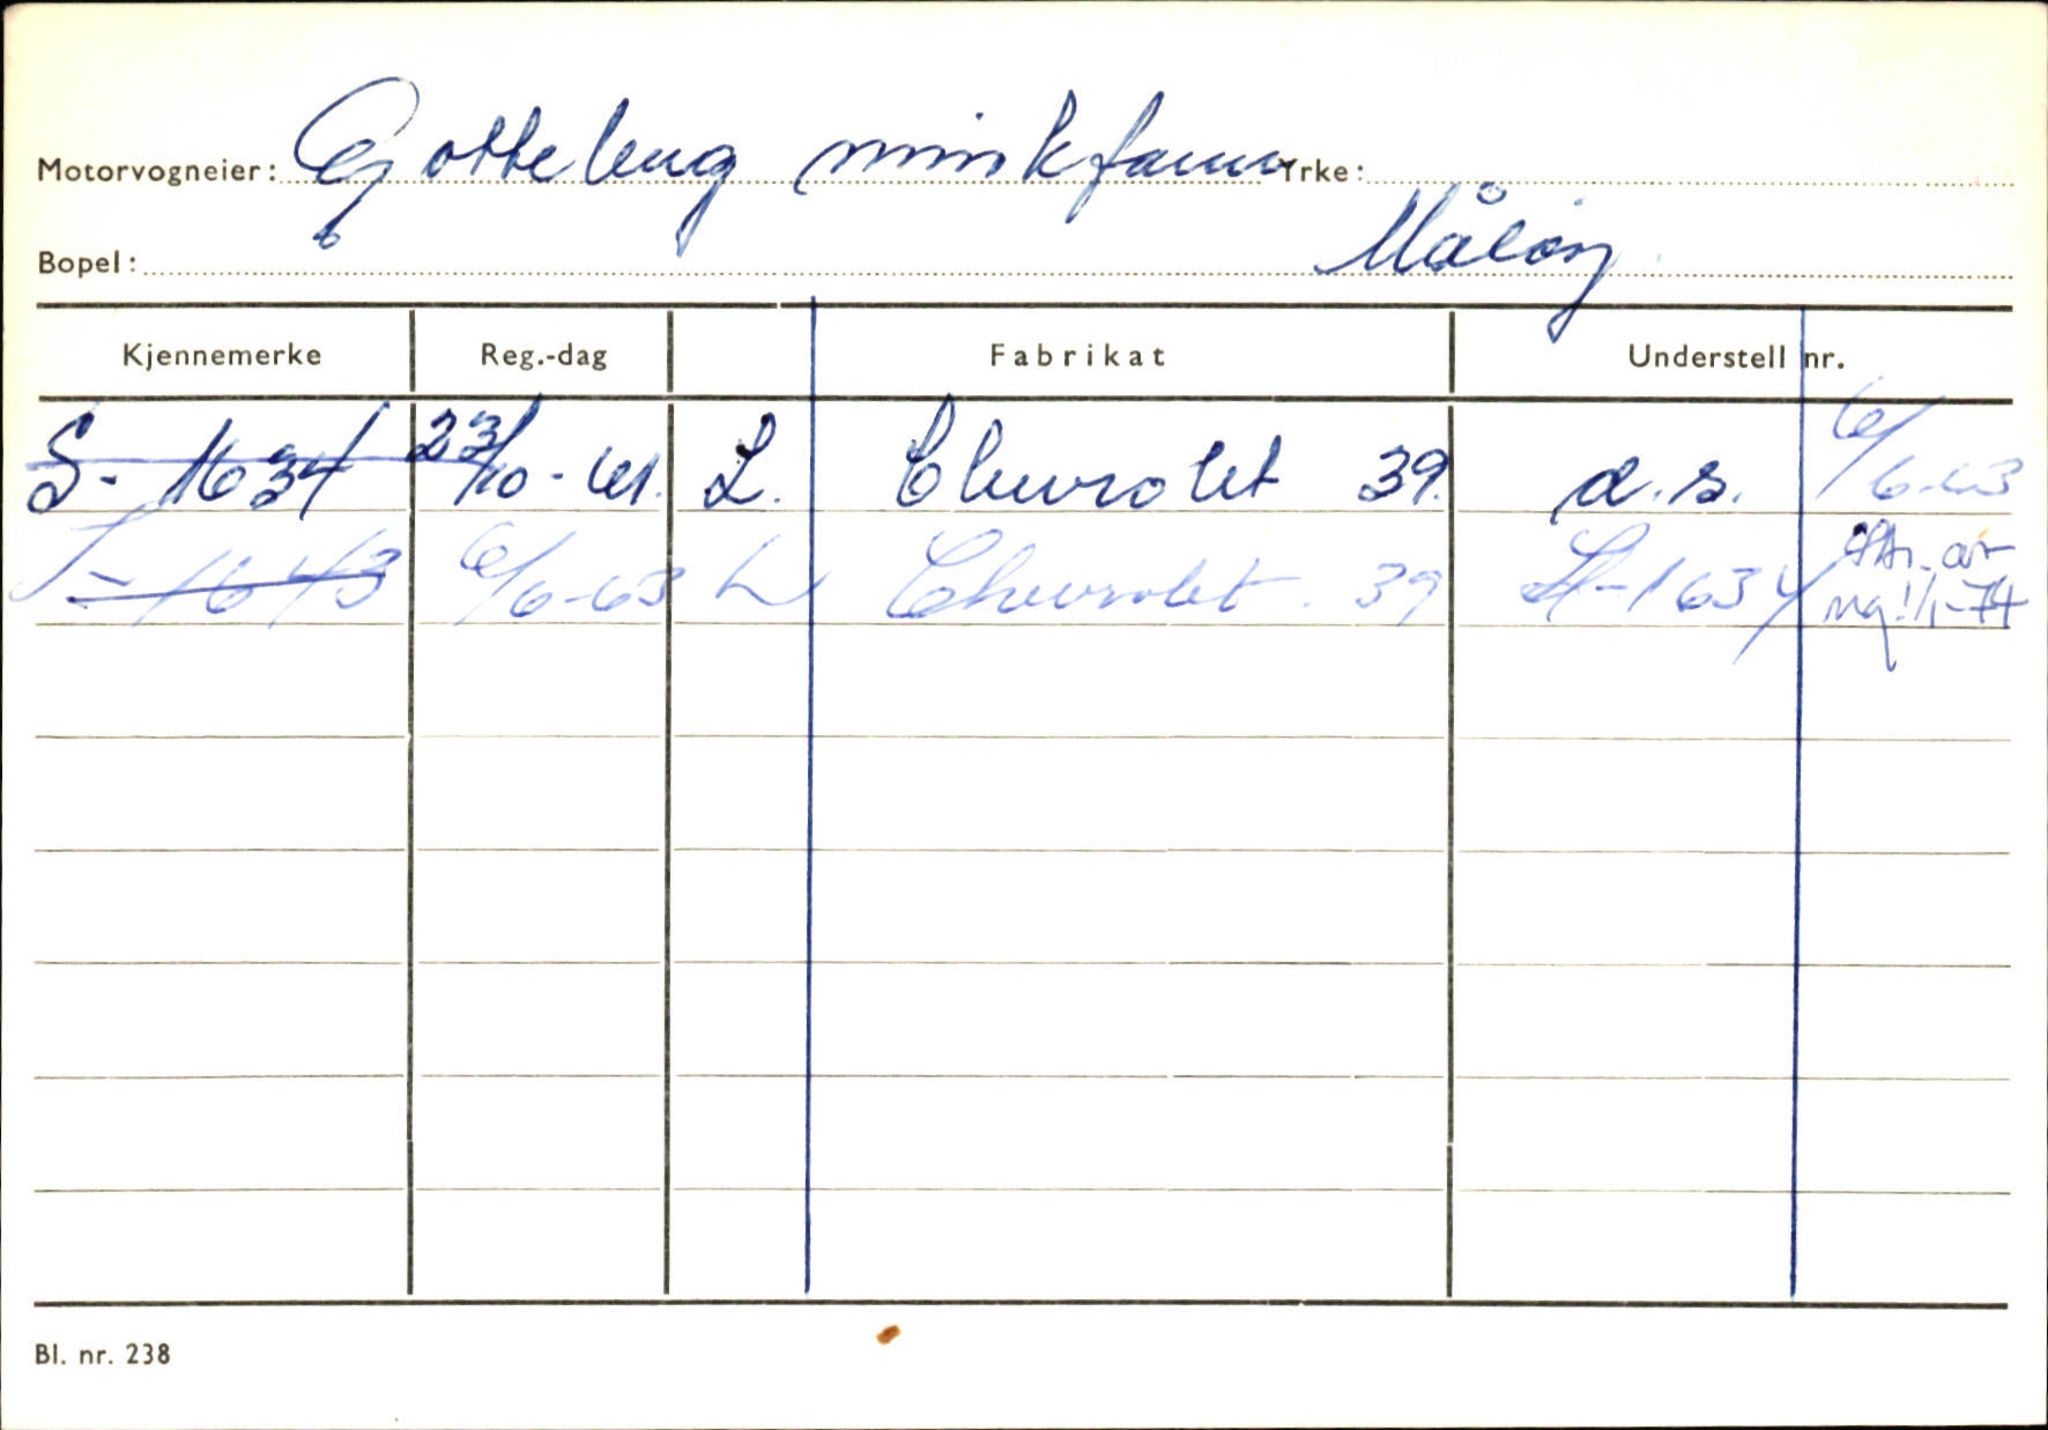 Motorvogneier: Gotteberg minkfarm Yrke:
Bopel: Måløy
Kjennemerke Reg.-dag Fabrikat Understell nr.
S- 1634 23/10-61. L. Chevrolet 39. d.s. 6/6-63
1643 6/6-63 L Chevrolet. 39 1634
reg. 1/1-74
Bl. nr. 238